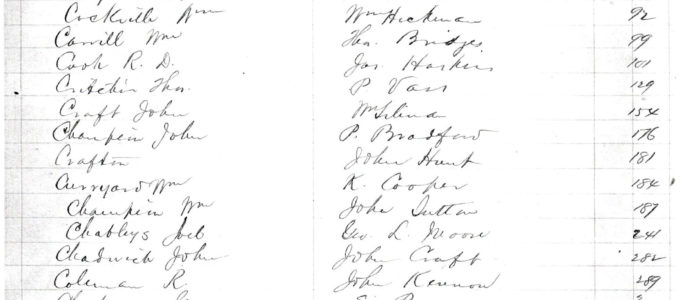 Cockville Wm Wm Hickman 92
Carrill Wm Tho. Bridges 99
Cook R. D. Jas Haskins 101
Critchin Tho. P Vass 129
Craft John Wm 154
Champein John P. Bradford 176
Crafton John Hunt 181
Curryard Wm K. Cooper 184
Champein Wm John Sutton 187
Chableys Joel Geo L. Moore 241
Chadwick John John Craft 282
Coleman R John Kennon 289